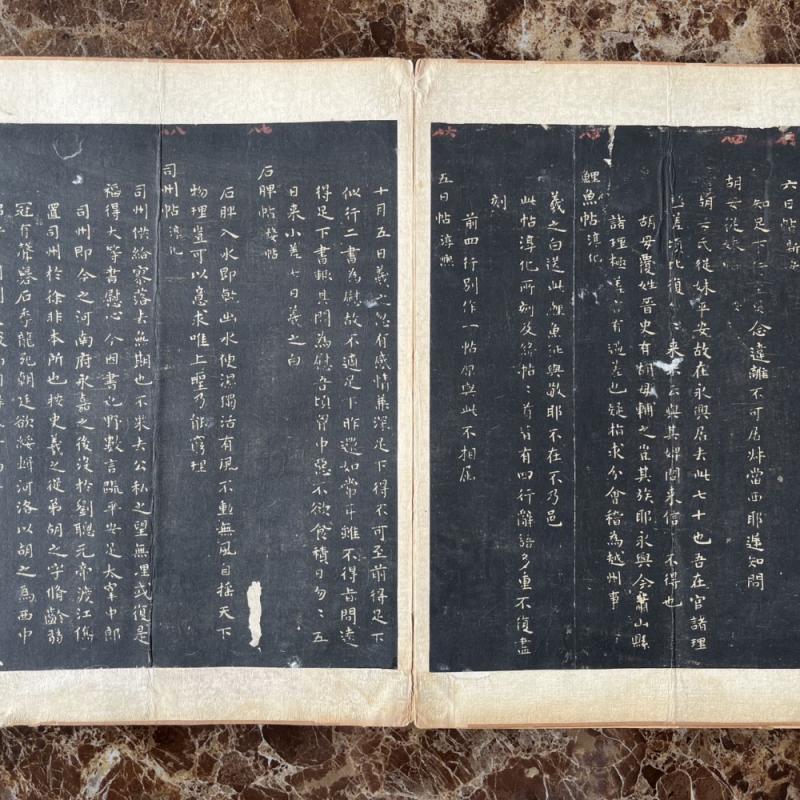 六日帖
知足下念違離不可居此當西耶遲知問
胡母從妹
胡母氏從妹平安故在永興居去此七十也吾在官諸理
極差頃比復來與其婦問來信不得也
胡母覆姓晉史有胡母輔之豈其族耶永興今蕭山縣
諸理極差言有過差也疑指求分會稽為越州事
鯉魚帖淳化
羲之白送此鯉魚征與敬耶不在不乃邑
此帖淳化所刻及絳帖二首前有四行辭語多重不復盡
刻
前四行別作一帖原與此不相屬
五日帖淳熙
十月五日羲之忽有感情兼深足下得不可至前得足下
似行二書為慰故不適足下昨還如常耳雖不得旨問遠
得足下書輒具問為慰吾頃胃中惡不欲食積日勿勿五
日來小差七日羲之白
石脾帖
石脾入水即乾出水便濕獨活有風不動無風自搖天下
物理豈可以意求唯上聖乃能窮理
司州帖淳化
司州供給寥落去無期也不果去公私之望無理或復是
福得大等書慰心今因書也野數言疏平安定太宰中郎
司州即今之河南府永嘉之後沒於劉聰元帝渡江僑
置司州於徐非本所也按史羲之從弟胡之字脩齡弱
冠有聲譽石季龍死朝廷欲綏輯河洛以胡之為西中